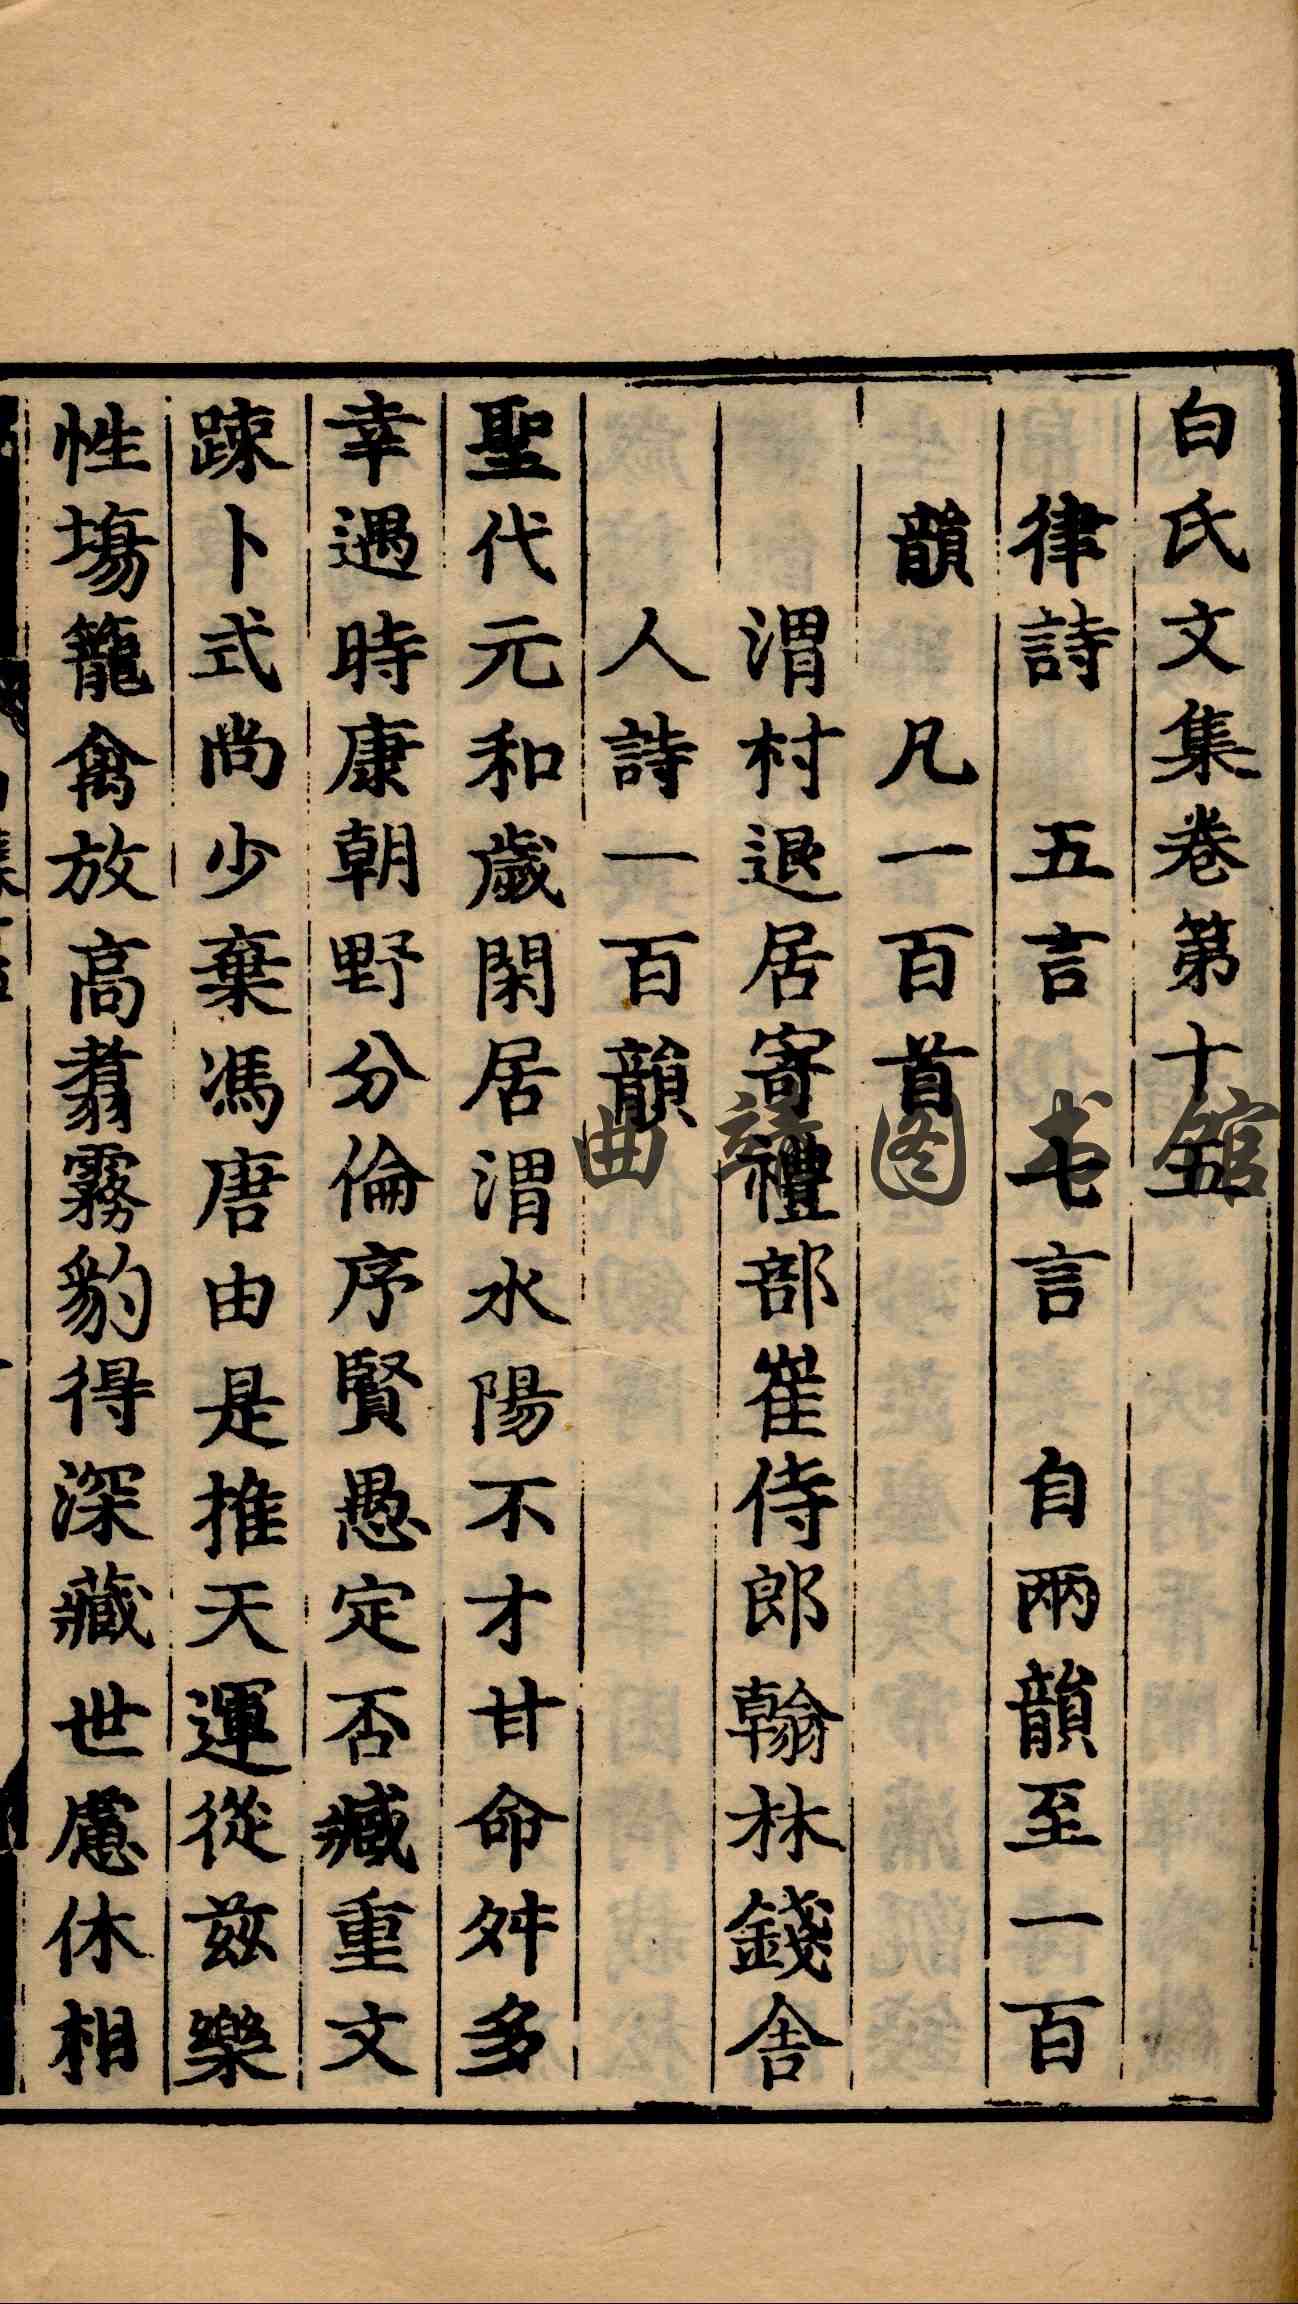 白氏文集卷第十五
律詩 五言 七言 自兩韻至一百
韻 凡一百首
渭村退居寄禮部崔侍郎翰林錢舍
人詩一百韻
聖代元和歲閑居渭水陽不才甘命舛多
幸遇時康朝野分倫序賢愚定否臧重文
疎卜式尚少棄馮唐由是推天運從茲樂
性場籠禽放高翥霧豹得深藏世慮休相
曲 图书馆